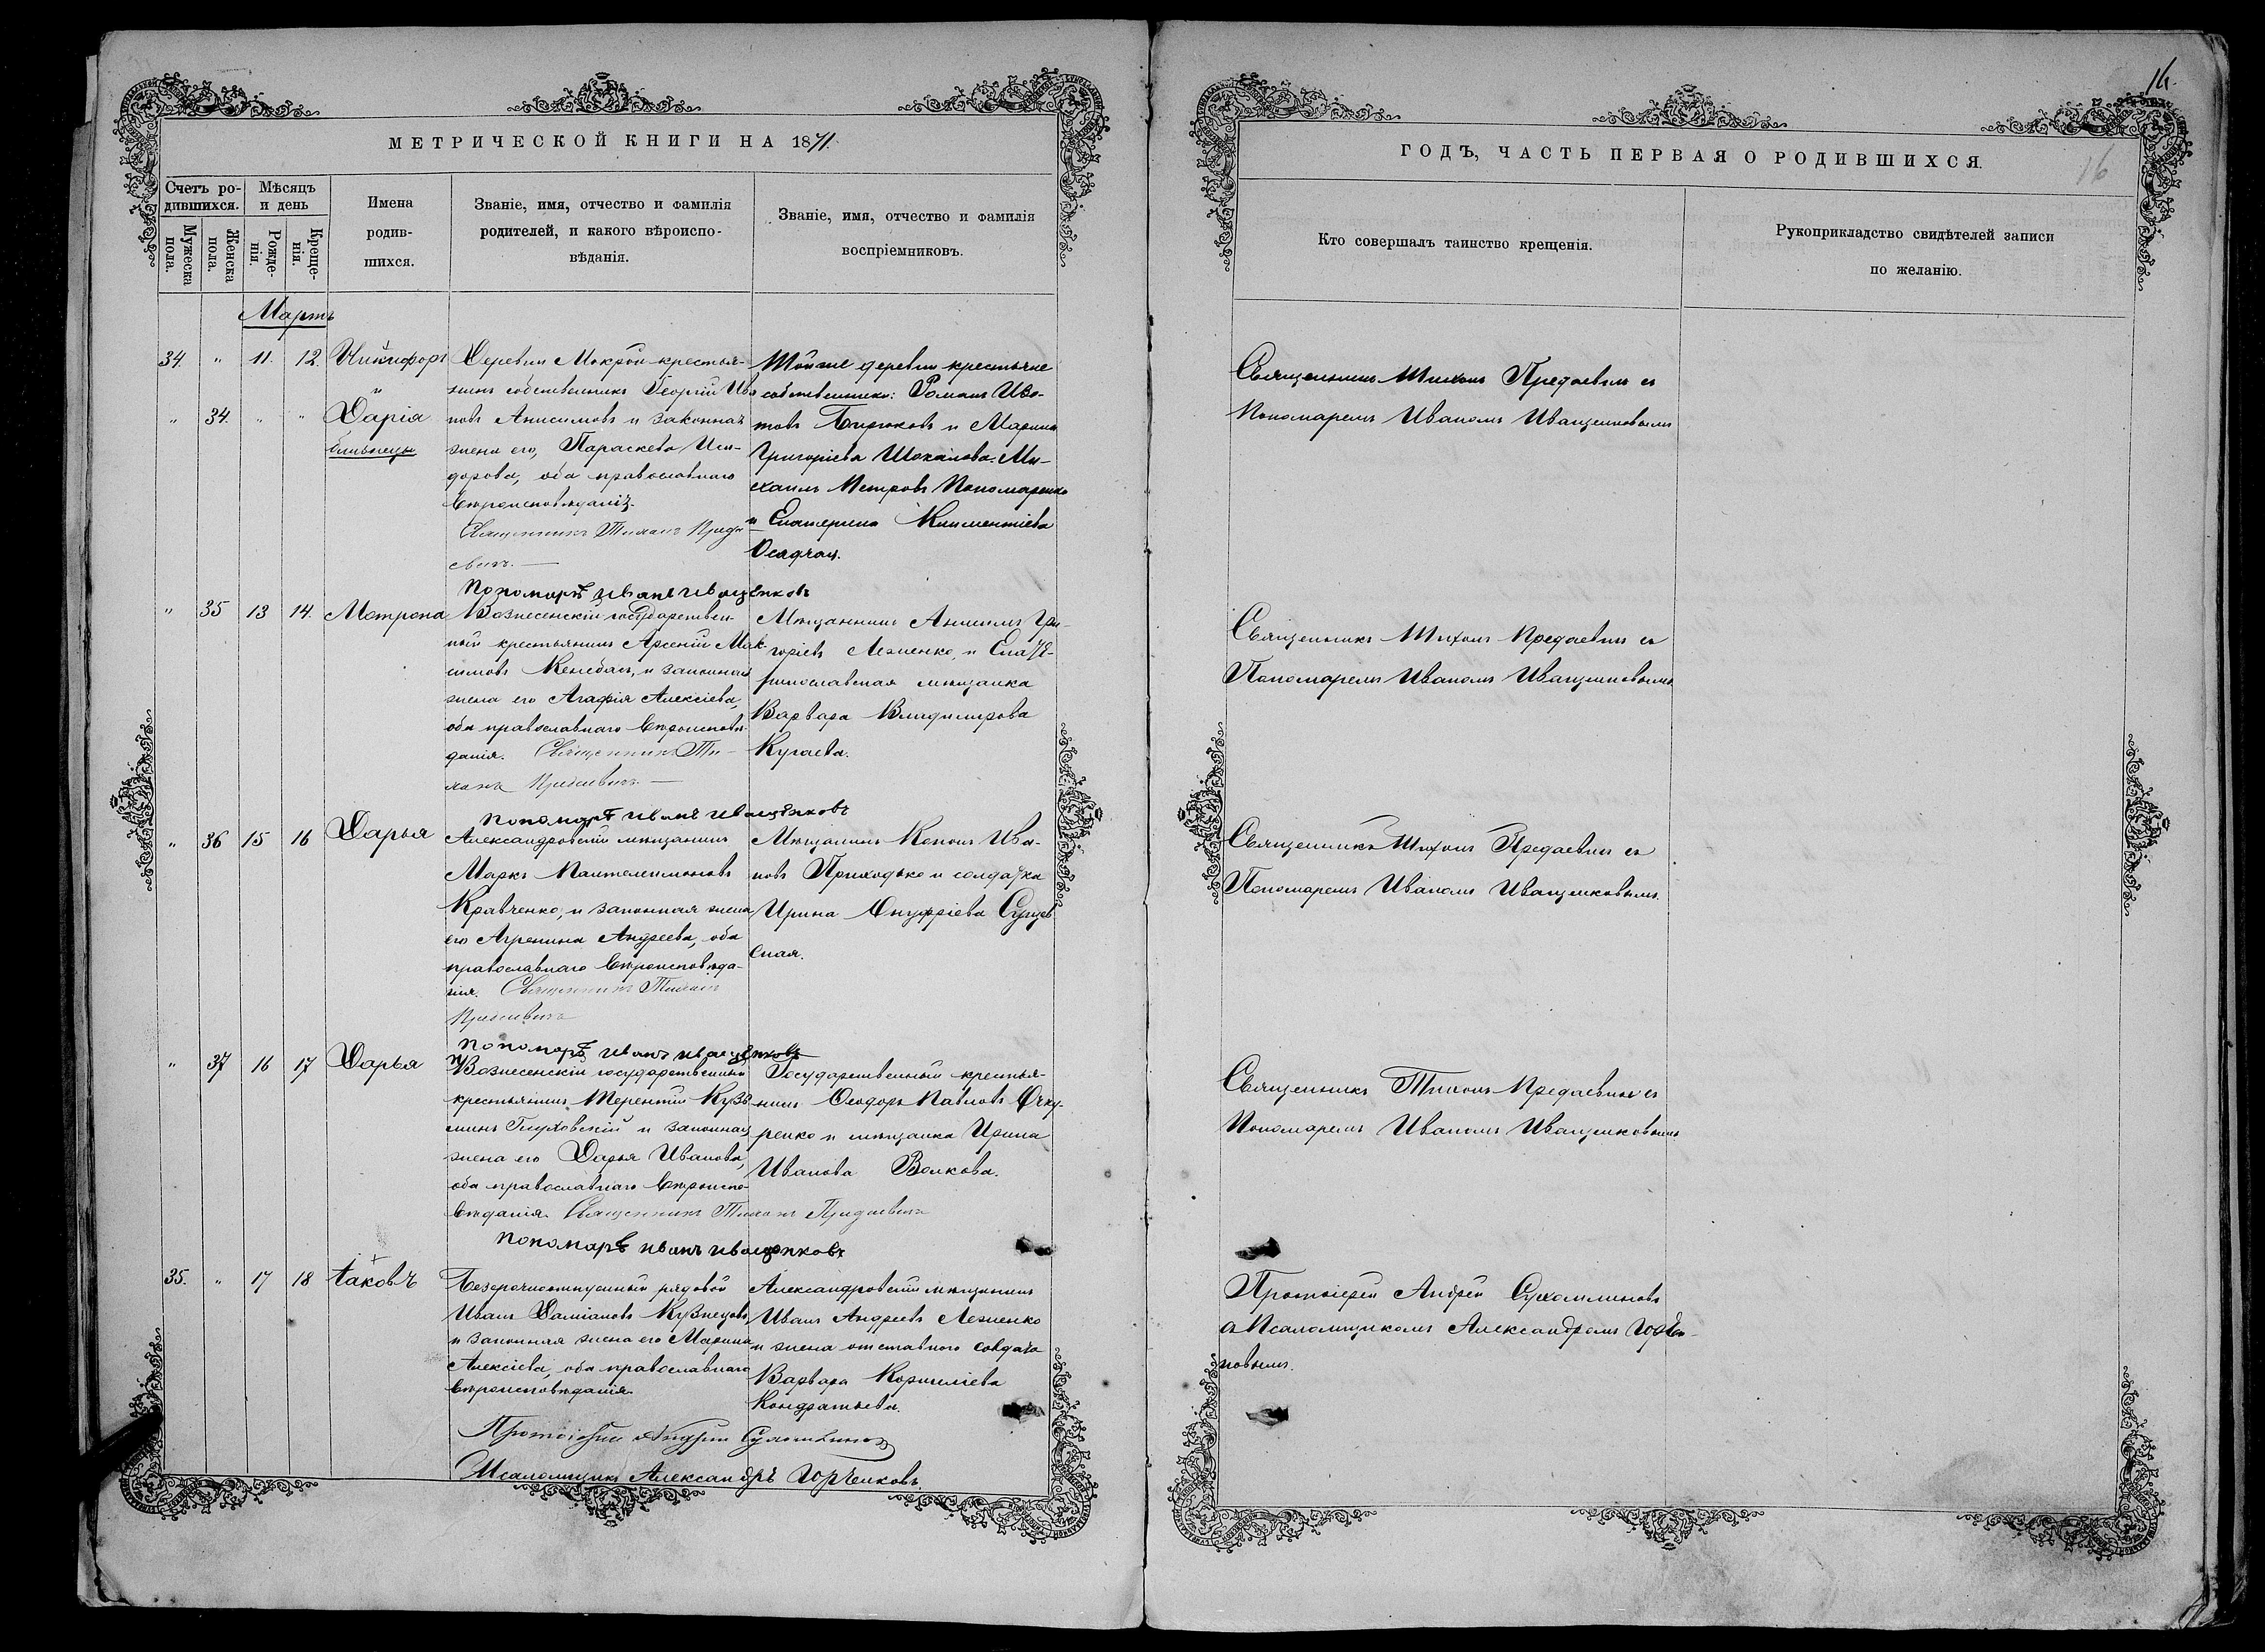 16.
16
МЕТРИЧЕСКОЙ КНИГИ НА 1871.
Счетъ ро-
дившихся.
Мѣсяцъ
и день
Мужеска
пола.
Женска
пола.
Рожде-
нія.
Креще-
нія.
Имена
родив-
шихся.
Званіе, имя, отчество и фамилія
родителей, и какого вѣроиспо-
вѣданія.
Званіе, имя, отчество и фамилія
воспріемниковъ.
Мартъ
34. " 11. 12. Никифоръ
и
" 34. " " Дарія
близнецы
Деревни Мокрой крестья-
нинъ собственникъ Георгій Ива
новъ Анисимовъ и законная
жена его, Параскева Иси-
дорова, оба православнаго
вѣроисповѣданія.
Священникъ Тихонъ Преда
евичъ.
Пономарь Иванъ Иващенковъ
Тойже деревни крестьяне
собственники: Романъ Иво-
товъ Бирюковъ и Марина
Григоріева Шокалова. Ми-
хаилъ Петровъ Пономаренко
и Екатерина Климентіева
Осядчая.
" 35 13 14. Матрона
Вознесенскій государствен-
ный крестьянинъ Арсеній Мак-
симовъ Келебасъ, и законная
жена его Агафія Алексіева,
оба православнаго вѣроисповѣ-
данія. Священникъ Ти-
хонъ Предаевичъ.
Пономарь Иванъ Иващенковъ
Мѣщанинъ Анисимъ Гри-
горіевъ Леменко, и Екате-
ринославская мѣщанка
Варвара Владимирова
Кугаева.
" 36 15 16 Дарья
Александровскій мѣщанинъ
Маркъ Пантелеимоновъ
Кравченко, и законная жена
его Агрепина Андреева, оба
православнаго вѣроисповѣда-
нія. Священникъ Тихонъ
Предаевичъ
Пономарь Иванъ Иващенковъ
Мѣщанинъ Кононъ Ива-
новъ Приходько и солдатка
Ирина Онуфріева Сущев
ская.
" 37 16 17 Дарья
Вознесенскій государственный
крестьянинъ Терентій Кузь
минъ Глуховскій и законная
жена его Дарья Иванова,
оба православнаго вѣроиспо-
вѣданія. Священникъ Тихонъ Предаевичъ
Пономарь Иванъ Иващенковъ
Государственный крестья-
нинъ Феодоръ Павловъ Очку-
ренко и мѣщанка Ирина
Иванова Волкова.
35. " 17 18 Іаковъ
Безсрочноотпускной рядовой
Иванъ Даміановъ Кузнецовъ,
и законная жена его Марина
Алексіева, оба православнаго
вѣроисповѣданія.
Протоіерей Андрей Сухомлиновъ
Псаломщикъ Александръ Горѣнковъ.
Александровскій мѣщанинъ
Иванъ Андреевъ Леменко
и жена отставного солдата
Варвара Корниліева
Кондратьева.
ГОДЪ, ЧАСТЬ ПЕРВАЯ О РОДИВШИХСЯ.
Кто совершалъ таинство крещенія.
Рукоприкладство свидѣтелей записи
по желанію.
Священникъ Тихонъ Предаевичъ съ
Пономаремъ Иваномъ Иващенковымъ
Священникъ Тихонъ Предаевичъ съ
Пономаремъ Иваномъ Иващенковымъ.
Священникъ Тихонъ Предаевичъ съ
Пономаремъ Иваномъ Иващенковымъ.
Священникъ Тихонъ Предаевичъ съ
Пономаремъ Иваномъ Иващенковымъ
Протоіерей Андрей Сухомлиновъ
съ Псаломщикомъ Александромъ Горѣн-
ковымъ.